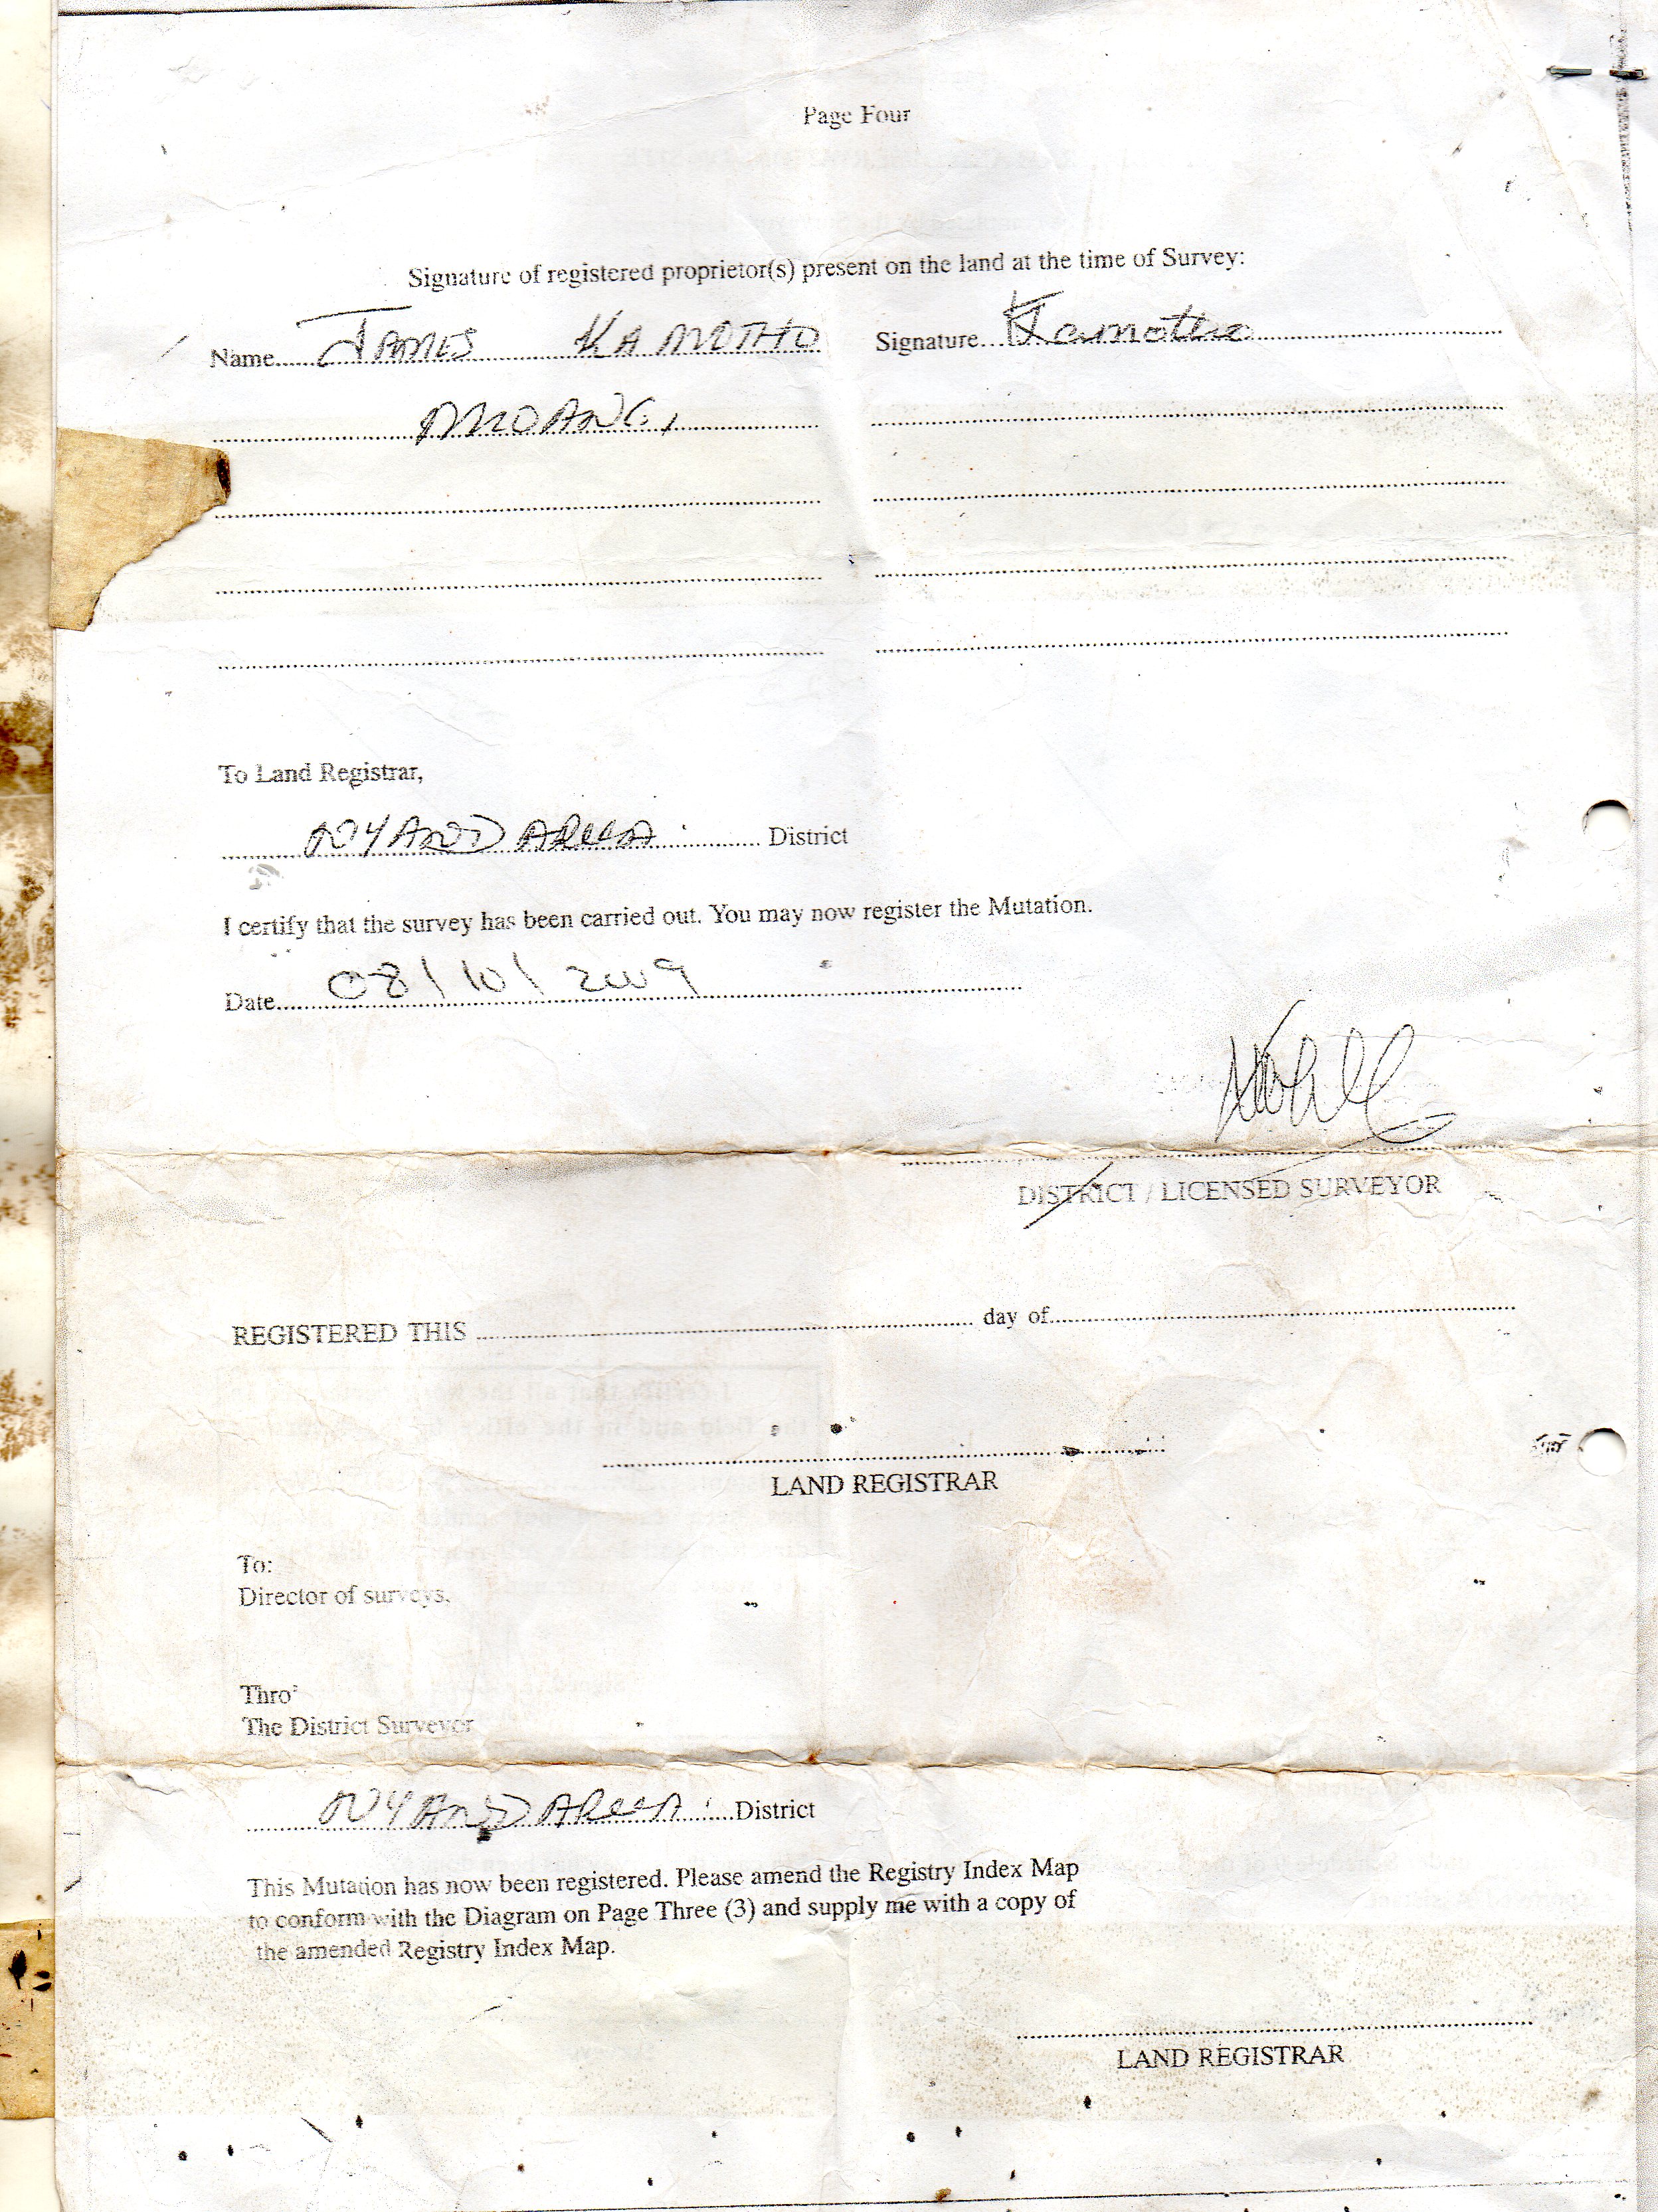 Page Four
Signature of registered proprietor(s) present on the land at the time of Survey:
Name JAMES KAMOTHO Signature Kamotho
To Land Registrar,
NYANDARUA District
I certify that the survey has been carried out. You may now register the Mutation.
Date 08/10/2009
DISTRICT / LICENSED SURVEYOR
REGISTERED THIS day of
LAND REGISTRAR
To:
Director of surveys.
Thro'
The District Surveyor
NYANDARUA District
This Mutation has now been registered. Please amend the Registry Index Map
to conform with the Diagram on Page Three (3) and supply me with a copy of
the amended Registry Index Map.
LAND REGISTRAR